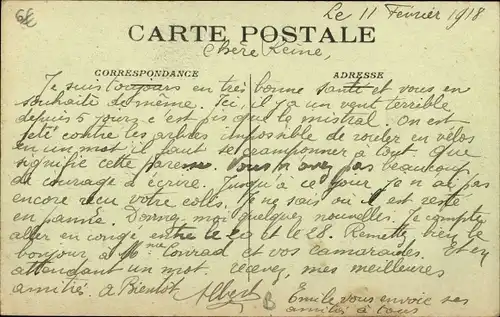 Le 11 Fevrier 1918
CARTE POSTALE
Chère Reine,
CORRESPONDANCE
ADRESSE
Je suis toujours en très bonne santé et vous en
souhaite de même. Ici, il y a un vent terrible
depuis 5 jours c'est pis que le mistral. On est
jeté contre les arbres impossible de rouler en vélos
en un mot il faut se cramponner à tout. Que
signifie cette Vous n'avez pas beaucoup
de courage à écrire. Jusqu'à ce jour je n'ai pas
encore reçu votre colis. Je ne sais où il est resté
en panne. Donnez moi quelques nouvelles. Je compte
aller en congé entre le 20 et le 28. Remettez bien le
bonjour à Mme Conrad et vos camarades. Et en
attendant un mot, recevez, mes meilleures
amitiés. A Bientôt Albert
Emile vous envoie ses
amitiés à tous